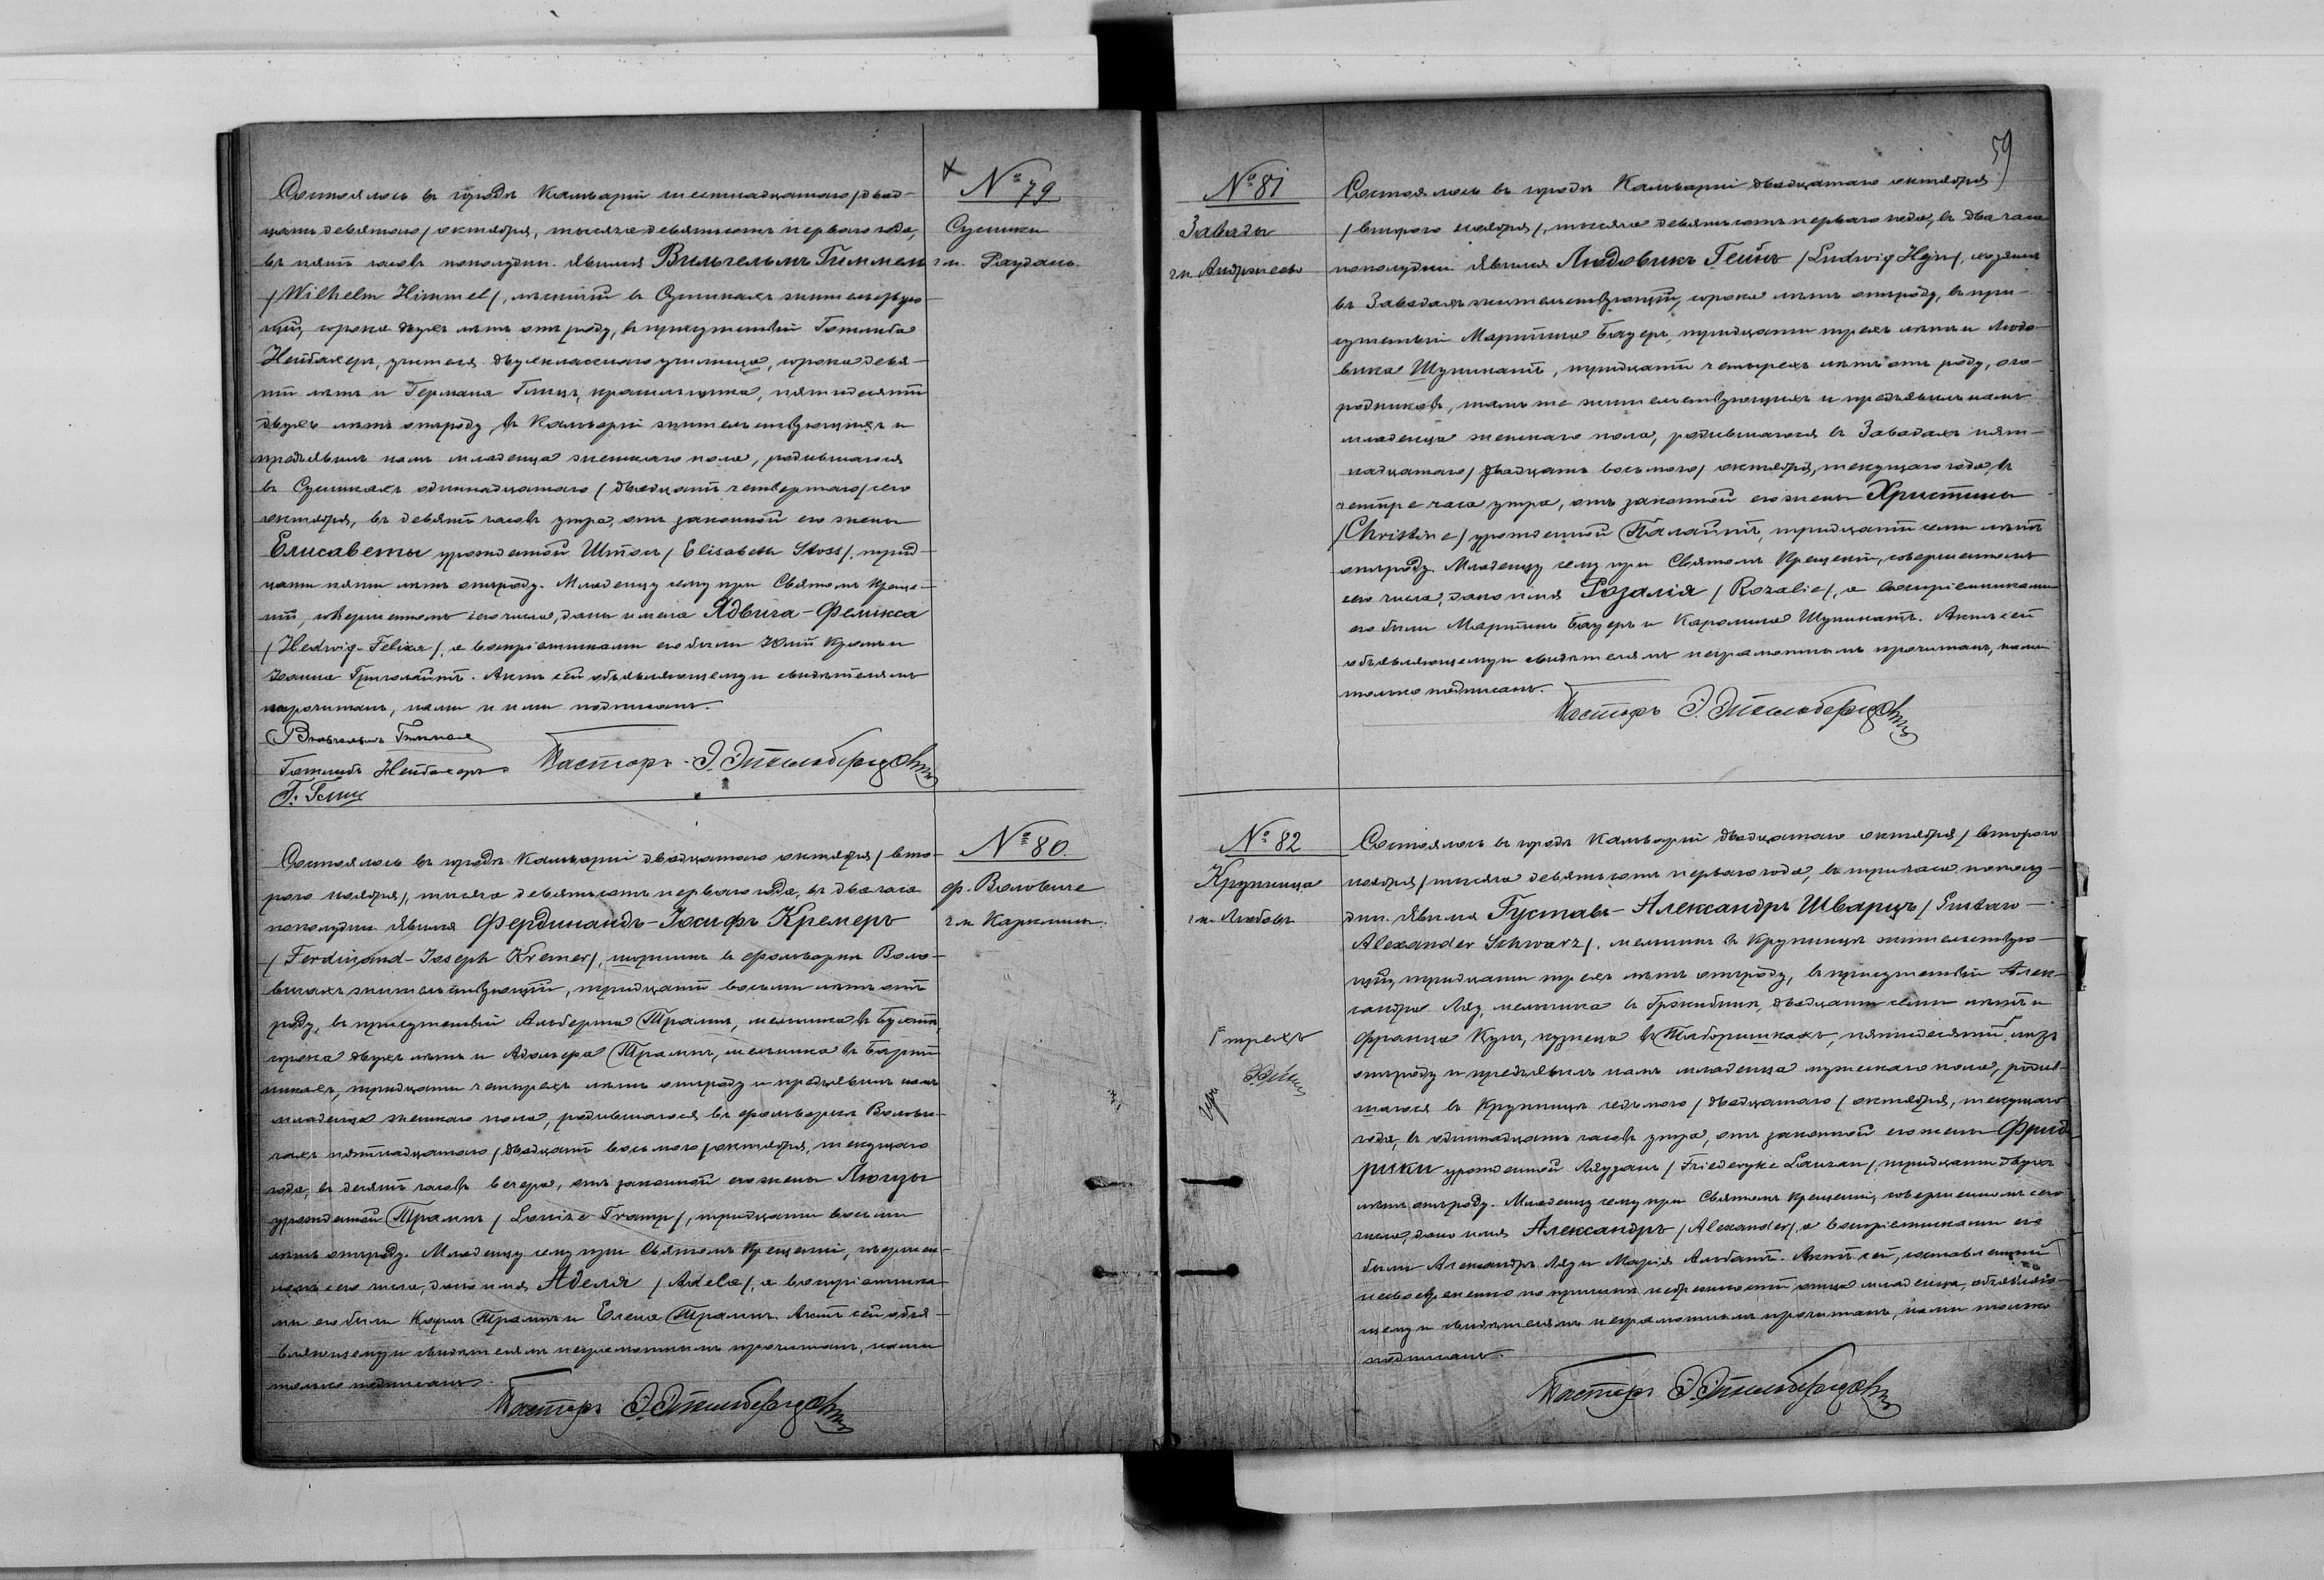 № 79
Сушики
гм. Раудань.
Состоялось въ городѣ Кальваріи шестнадцатого /двад-
цать девятого/ октября, тысяча девятьсотъ перваго года,
въ пять часовъ пополудни. Явился Вильгельмъ Гиммель
/Wilhelm Himmel/, въ Сушикахъ жительствую-
щій, сорока двухъ лѣтъ отъ роду, въ присутствіи Готлиба
Нейбахеръ, учителя двухкласснаго училища, сорока девя-
ти лѣтъ и Германа Глицъ, красильщика, пятидесяти
двухъ лѣтъ отъ роду, въ Кальваріи жительствующихъ и
предъявилъ намъ младенца женскаго пола, родившагося
въ Сушикахъ одиннадцатаго /двадцать четвертаго/ сего
октября, въ девять часовъ утра, отъ законной его жены
Елисаветы урожденной Штосъ /Elisabeth Stoss/, трид-
цати пяти лѣтъ отъ роду. Младенцу сему при Святомъ Креще-
ніи, совершенномъ сего числа, даны имена Ядвига-Феликса
/Hedwig-Felixa/, а воспріемниками его были Юлій Кромъ и
Іоанна Григолайтъ. Актъ сей объявляющему и свидѣтелямъ
прочитанъ, нами и ими подписанъ.
Вильгельмъ Гиммель
Готлибъ Нейбахеръ
Г. Глиц
Пасторъ
№ 80.
ф. Воловиче
гм Каркліны.
Состоялось въ городѣ Кальваріи двадцатаго октября /вто-
рого ноября/, тысяча девятьсотъ перваго года, въ два часа
пополудни явился Фердинандъ-Іосифъ Кремеръ
/Ferdinand-Joseph Kremer/, въ фольваркѣ Воло-
вичахъ жительствующій, тридцати восьми лѣтъ отъ
роду, въ присутствіи Альберта Трампъ, мельника въ
сорока двухъ лѣтъ и Адольфа Трампъ, мельника въ
тридцати четырехъ лѣтъ отъ роду и предъявилъ намъ
младенца женскаго пола, родившагося въ фольваркѣ Волови-
чахъ пятнадцатаго /двадцать восьмого/ октября, текущаго
года, въ десять часовъ вечера, отъ законной его жены Люизы
урожденной Трампъ /Louize Tramp/, тридцати восьми
лѣтъ отъ роду. Младенцу сему при Святомъ Крещеніи, совершен-
номъ сего числа, дано имя Аделя /Adela/, а воспріемника-
ми его были Карлъ Трампъ и Елена Трампъ. Актъ сей объя-
вляющему и свидѣтелямъ неграмотнымъ прочитанъ, нами
только подписанъ.
Пасторъ
59
№ 81
Завады
гм. Андржеево
Состоялось въ городѣ Кальваріи двадцатаго октября
/второго ноября/, тысяча девятьсотъ перваго года, въ два часа
пополудни. Явился Людовикъ Гейнъ /Ludwig Hejn/, хозяинъ
въ Завадахъ жительствующій, сорока лѣтъ отъ роду, въ при-
сутствіи Мартина Бауеръ, тридцати трехъ лѣтъ и Людо-
вика Шупикатъ, тридцати четырехъ лѣтъ отъ роду, ого-
родниковъ, тамъ же жительствующихъ и предъявилъ намъ
младенца женскаго пола, родившагося въ Завадахъ пят-
надцатаго /двадцать восьмого/ октября, текущаго года, въ
четыре часа утра, отъ законной его жены Христины
/Christine/ урожденной Палайтъ, тридцати семи лѣтъ
отъ роду. Младенцу сему при Святомъ Крещеніи, совершенномъ
сего числа, дано имя Розалія /Rozalie/, а воспріемниками
его были Мартинъ Бауеръ и Каролина Шупикатъ. Актъ сей
объявляющему и свидѣтелямъ неграмотнымъ прочитанъ, нами
только подписанъ.
Пасторъ
№ 82
Крупница
гм. Любовъ
Состоялось въ городѣ Кальваріи двадцатаго октября /второго
ноября/ тысяча девятьсотъ перваго года, въ три часа пополу-
дни. Явился Густавъ-Александръ Шварцъ /Gustav-
Alexander Schwarz/, мельникъ въ Крупницѣ жительствую-
щій, тридцати трехъ лѣтъ отъ роду, въ присутствіи Алек-
сандра Ляу, мельника въ двадцати семи лѣтъ и
Франца Кунъ, кузнеца въ Таборишкахъ, пятидесяти лѣтъ
трехъ
отъ роду и предъявилъ намъ младенца мужескаго пола, родив-
шагося въ Крупницѣ седьмого /двадцатаго/ октября, текущаго
года, въ одиннадцать часовъ утра, отъ законной его жены Фрид-
рики урожденной Ляузанъ /Friederyke Lauzan/, тридцати двухъ
лѣтъ отъ роду. Младенцу сему при Святомъ Крещеніи, совершенномъ сего
числа, дано имя Александръ /Alexander/, а воспріемниками его
были Александръ Ляу и Марія Альбатъ. Актъ сей, составленный
несвоевременно по причинѣ небрежности отца младенца, объявляю-
щему и свидѣтелямъ неграмотнымъ прочитанъ, нами только
подписанъ.
Пасторъ